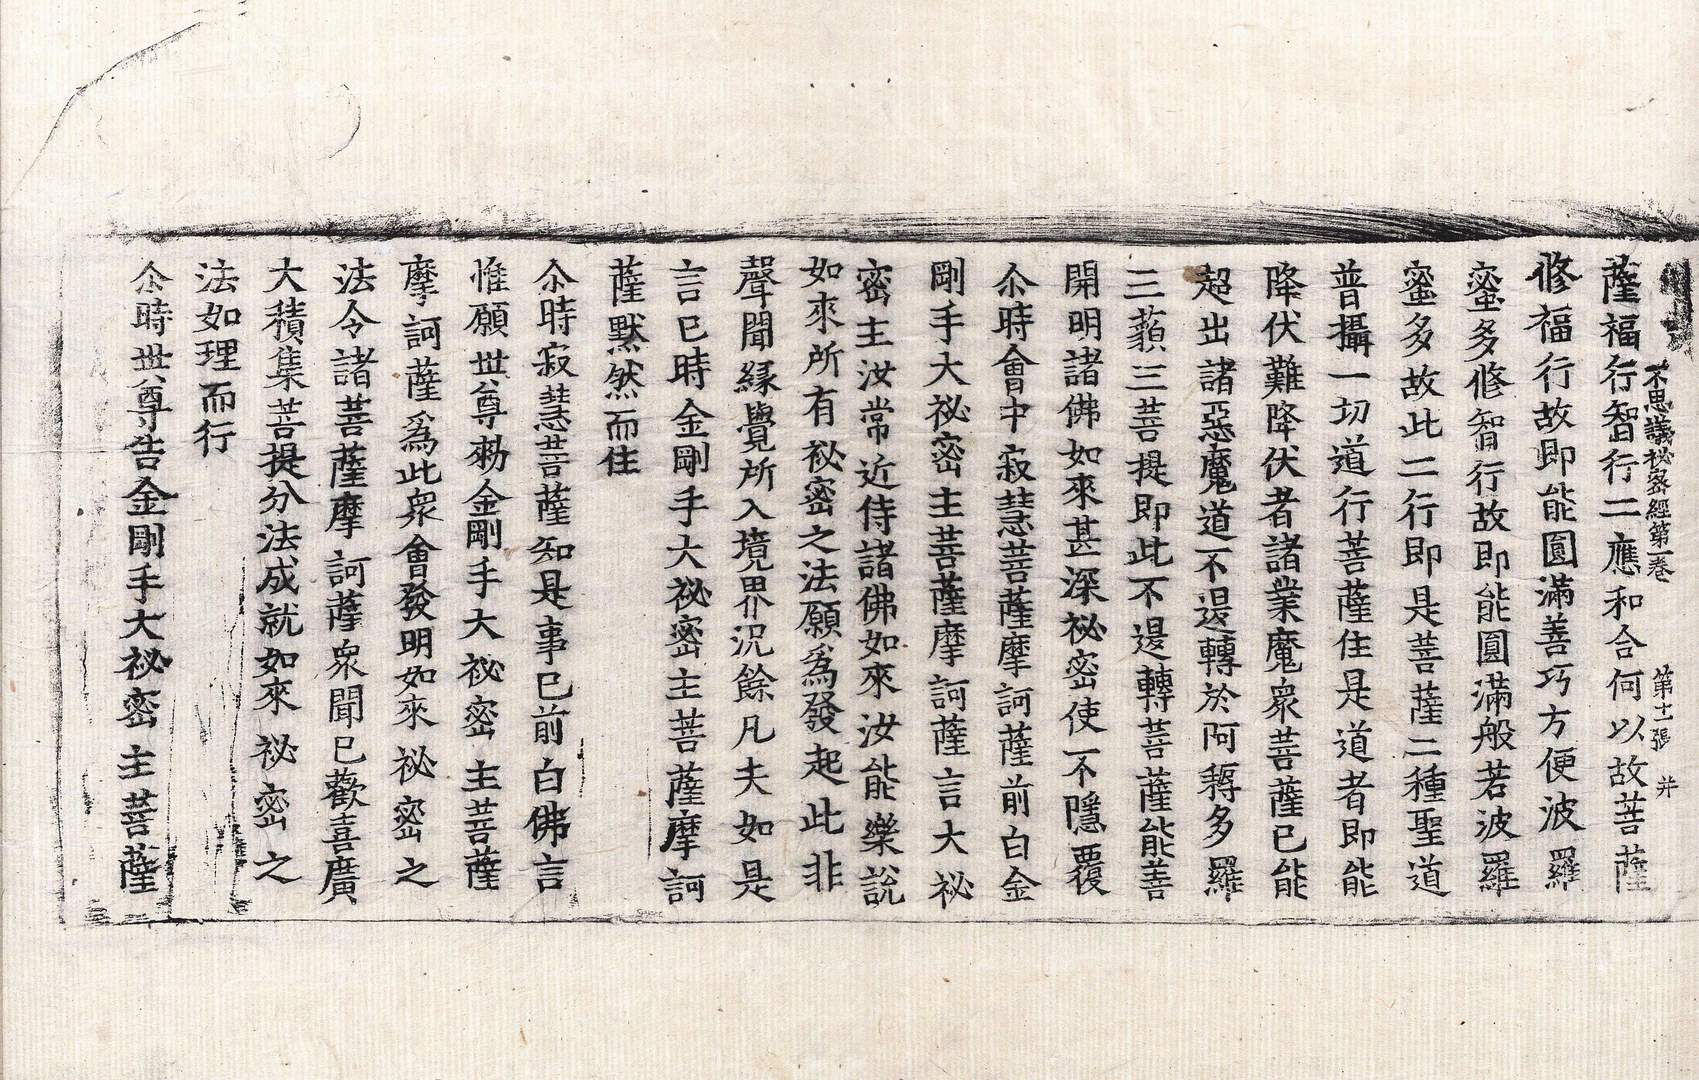 不思議秘密經第一卷 第十二張 并
薩福行智行二應和合何以故菩薩
修福行故即能圓滿善巧方便波羅
蜜多修智行故即能圓滿般若波羅
蜜多故此二行即是菩薩二種聖道
普攝一切道行菩薩住是道者即能
降伏難降伏者諸業魔衆菩薩已能
超出諸惡魔道不退轉於阿耨多羅
三藐三菩提即此不退轉菩薩能善
開明諸佛如來甚深祕密使不隱覆
尒時會中寂慧菩薩摩訶薩前白金
剛手大祕密主菩薩摩訶薩言大祕
密主汝常近侍諸佛如來汝能樂說
如來所有祕密之法願爲發起此非
聲聞緣覺所入境界況餘凡夫如是
言已時金剛手大祕密主菩薩摩訶
薩默然而住
尒時寂慧菩薩知是事已前白佛言
惟願世尊勑金剛手大祕密主菩薩
摩訶薩爲此衆會發明如來祕密之
法令諸菩薩摩訶薩衆聞已歡喜廣
大積集菩提分法成就如來祕密之
法如理而行
尒時世尊告金剛手大祕密主菩薩